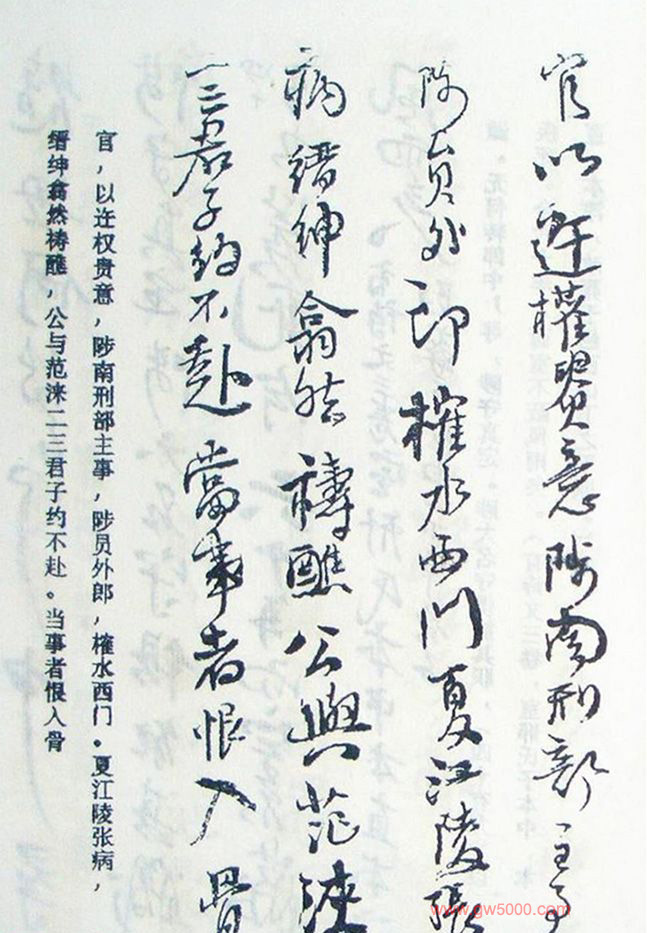 官以迕權貴意陟南刑部主事
陟員外郎榷水西門夏江陵張
病縉紳翕然禱醮公與范淶
二三君子約不赴當事者恨入骨
官，以迕权贵意，陟南刑部主事，陟员外郎，榷水西门。夏江陵张病，
缙绅翕然祷醮，公与范涞二三君子约不赴。当事者恨入骨
www.gw5000.com